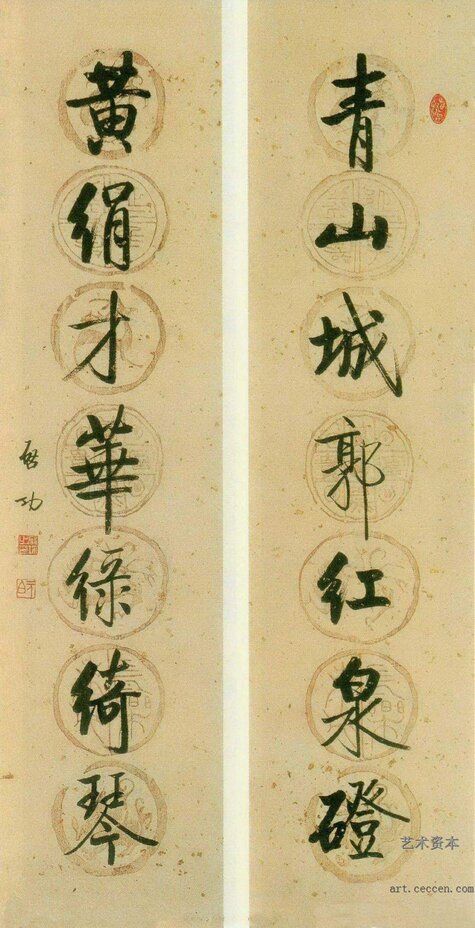 青山城郭红泉磴
黃絹才華綠綺琴
啟功
艺术资本
art.ceccen.com